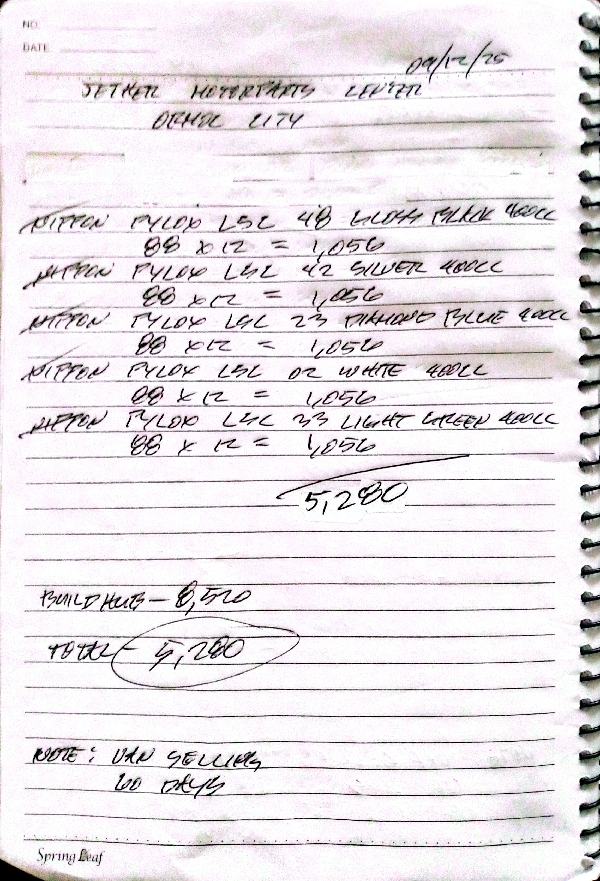 NO.
DATE
09/12/25
JETHER MOTORPARTS CENTER
ORMOC CITY
NIPPON PYLOX LSC 48 GLOSS BLACK 400CC
88 x 12 = 1,056
NIPPON PYLOX LSC 42 SILVER 400CC
88 x 12 = 1,056
NIPPON PYLOX LSC 23 DIAMOND BLUE 400CC
88 x 12 = 1,056
NIPPON PYLOX LSC 02 WHITE 400CC
88 x 12 = 1,056
NIPPON PYLOX LSC 33 LIGHT GREEN 400CC
88 x 12 = 1,056
5,280
BUILD HUB - 8,520
TOTAL - 5,280
NOTE: VAN SELLING
60 DAYS
Spring Leaf